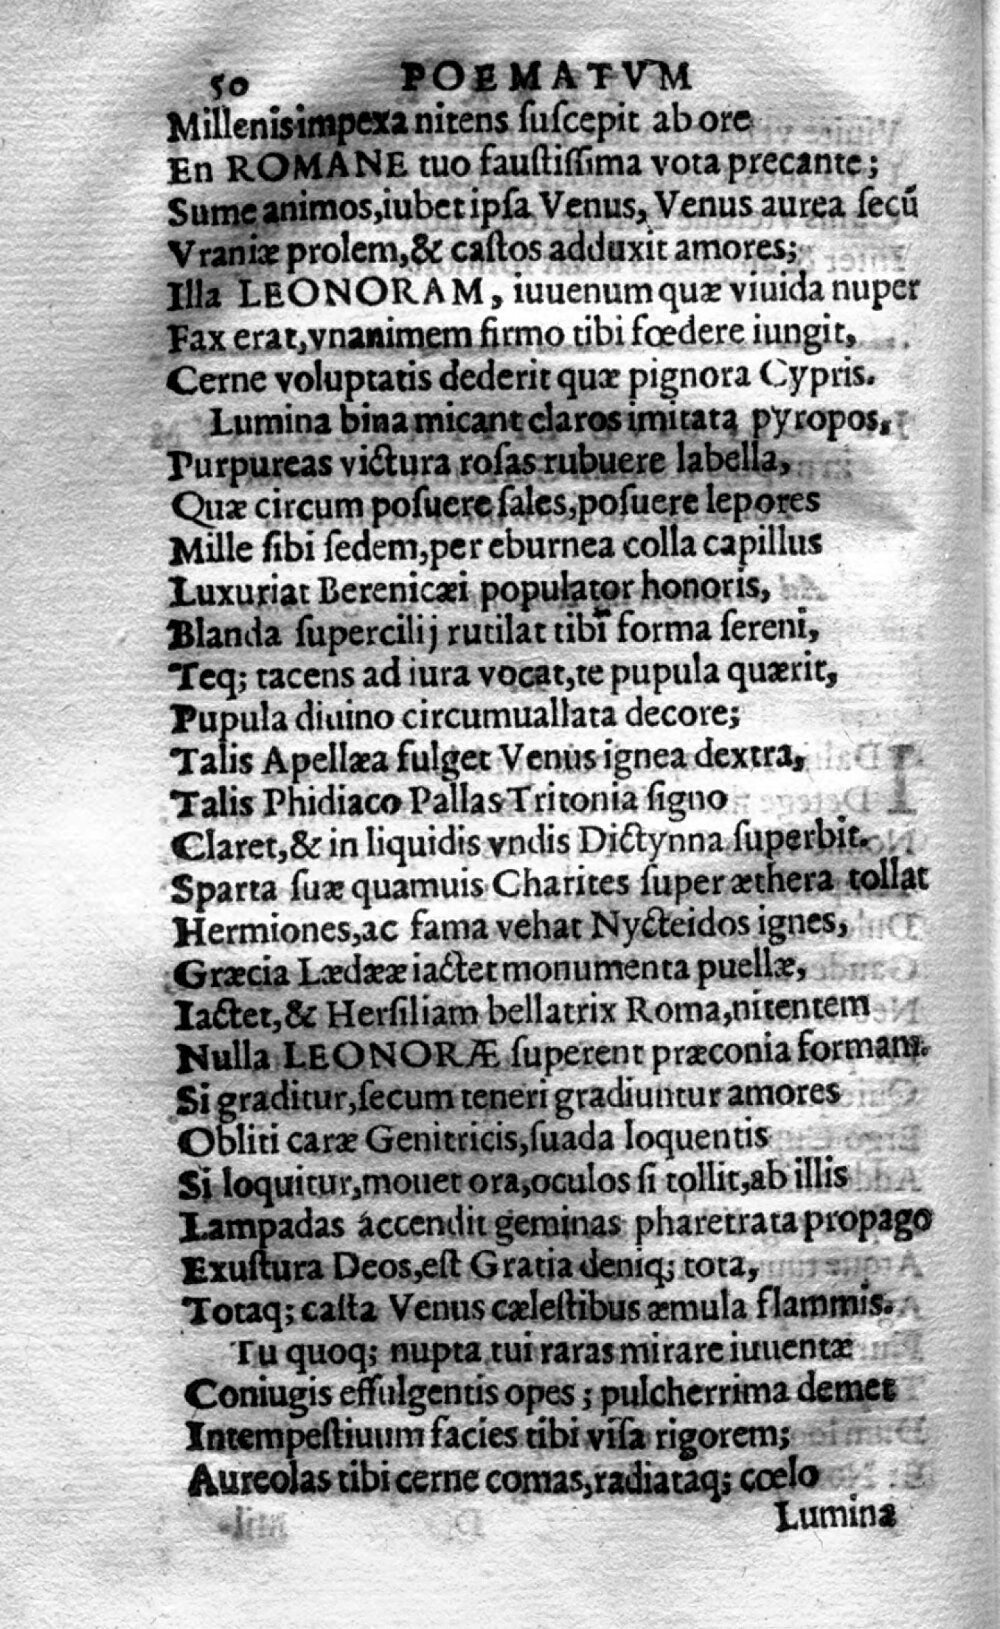 50 POEMATVM
Millenis impexa nitens ſuſcepit ab ore
En ROMANE tuo fauſtiſſima vota precante;
Sume animos, iubet ipſa Venus, Venus aurea ſecũ
Vraniæ prolem, & caſtos adduxit amores;
Illa LEONORAM, iuuenum quæ viuida nuper
Fax erat, vnanimem firmo tibi fœdere iungit,
Cerne voluptatis dederit quæ pignora Cypris.
Lumina bina micant claros imitata pyropos,
Purpureas victura roſas rubuere labella,
Quæ circum poſuere ſales, poſuere lepores
Mille ſibi ſedem, per eburnea colla capillus
Luxuriat Berenicæi populator honoris,
Blanda ſupercilij rutilat tibi forma ſereni,
Teq; tacens ad iura vocat, te pupula quærit,
Pupula diuino circumuallata decore;
Talis Apellæa fulget Venus ignea dextra,
Talis Phidiaco Pallas Tritonia ſigno
Claret, & in liquidis vndis Dictynna ſuperbit.
Sparta ſuæ quamuis Charites ſuper æthera tollat
Hermiones, ac fama vehat Nycteidos ignes,
Græcia Lædææ iactet monumenta puellæ,
Iactet, & Herſiliam bellatrix Roma, nitentem
Nulla LEONORÆ ſuperent præconia formam.
Si graditur, ſecum teneri gradiuntur amores
Obliti caræ Genitricis, ſuada loquentis
Si loquitur, mouet ora, oculos ſi tollit, ab illis
Lampadas accendit geminas pharetrata propago
Exuſtura Deos, eſt Gratia deniq; tota,
Totaq; caſta Venus cæleſtibus æmula flammis.
Tu quoq; nupta tui raras mirare iuuentæ
Coniugis effulgentis opes; pulcherrima demet
Intempeſtiuum facies tibi viſa rigorem;
Aureolas tibi cerne comas, radiataq; cœlo
Lumina